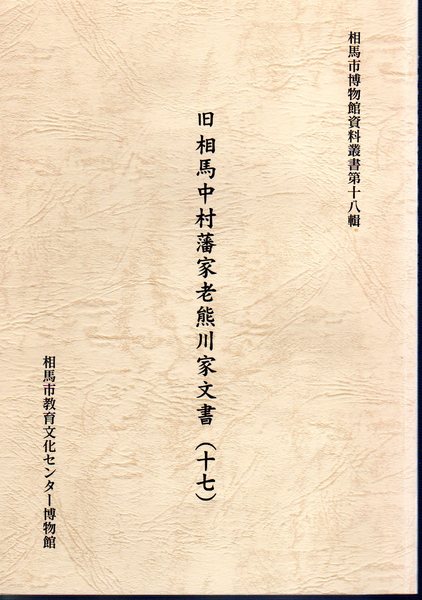 相馬市博物館資料叢書第十八輯
旧相馬中村藩家老熊川家文書（十七）
相馬市教育文化センター博物館